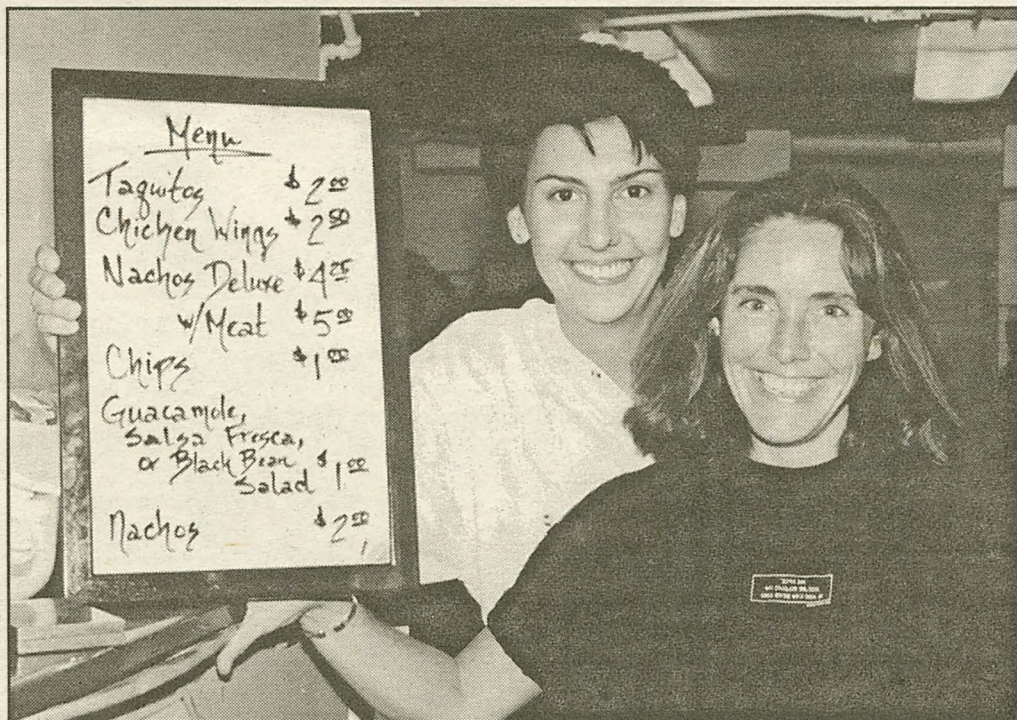 Menu
Taquitos $2.00
Chicken Wings $2.50
Nachos Deluxe $4.25
w/Meat $5.00
Chips $1.00
Guacamole,
Salsa Fresca,
or Black Bean
Salad $1.00
Nachos $2.50
IF YOU CAN READ THIS